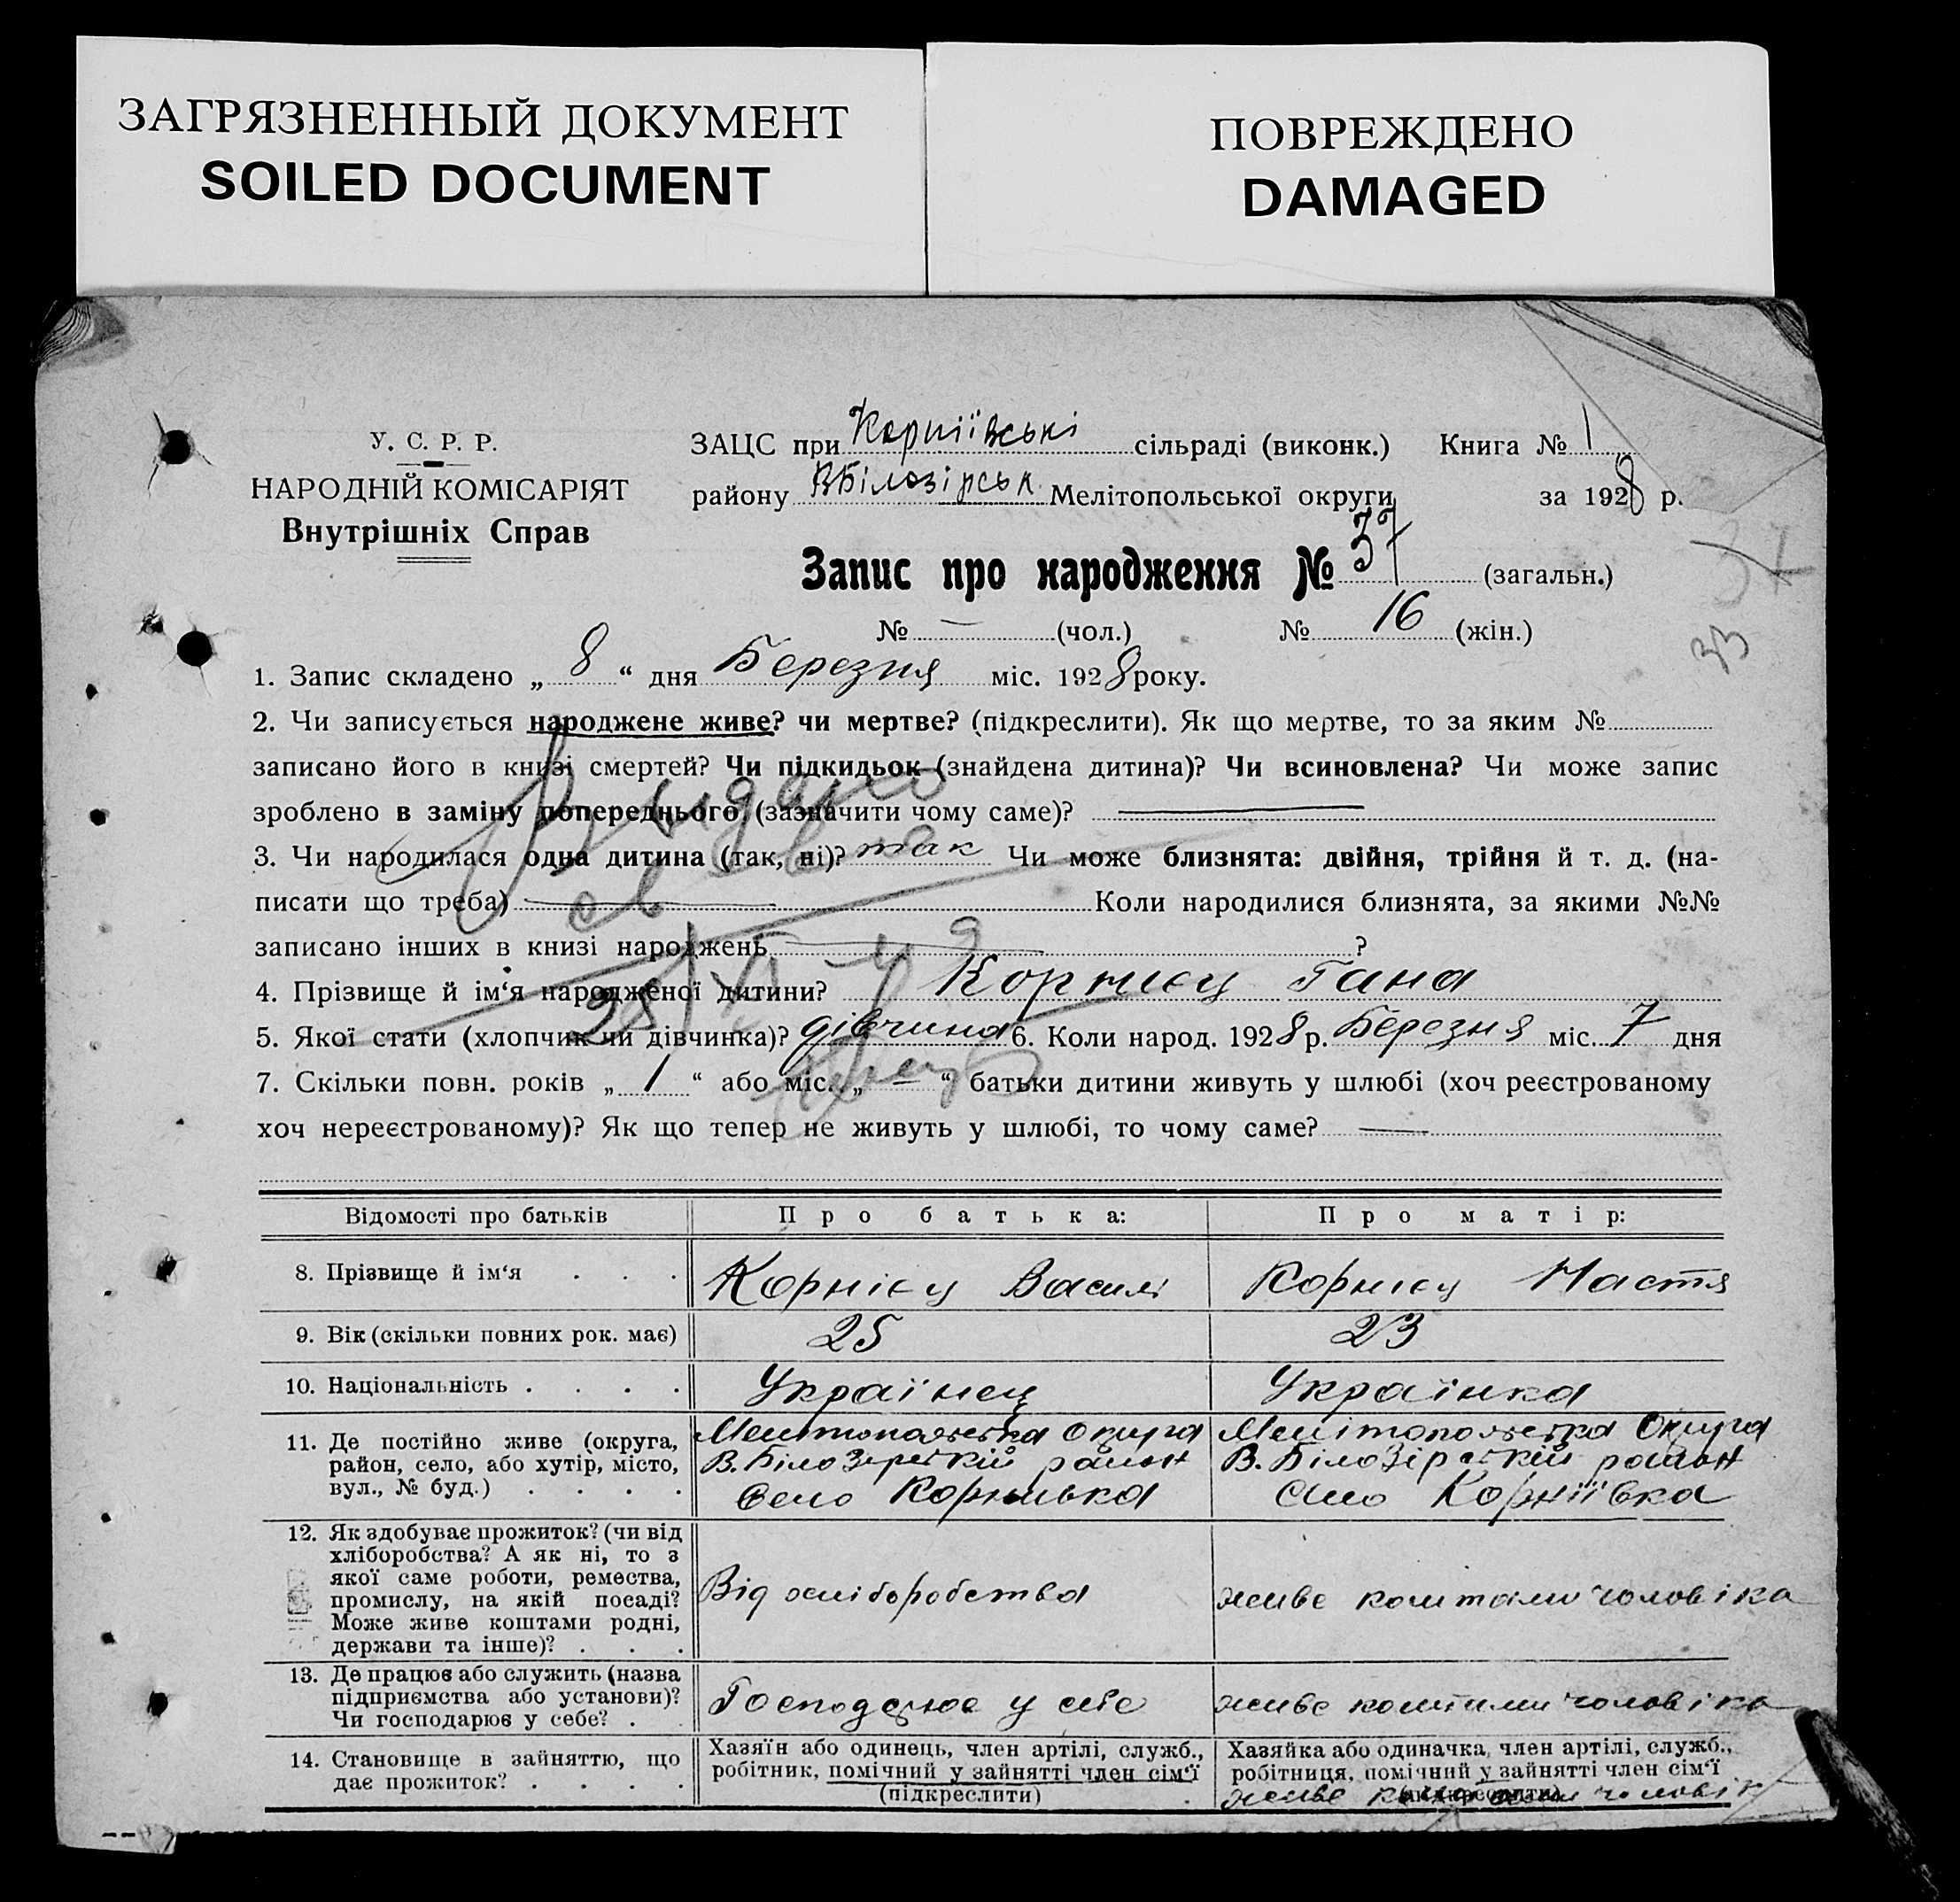 ЗАГРЯЗНЕННЫЙ ДОКУМЕНТ
SOILED DOCUMENT
ПОВРЕЖДЕНО
DAMAGED
У. С. Р. Р.
НАРОДНІЙ КОМІСАРІЯТ
Внутрішніх Справ
ЗАЦС при Корніївські сільраді (виконк.) Книга № 1
району ВБілозірськ Мелітопольської округи за 1928 р.
Запис про народження № 37 (загальн.)
37
№ — (чол.) № 16 (жін.)
33
1. Запис складено „ 8 “ дня Березня міс. 1928 року.
2. Чи записується народжене живе? чи мертве? (підкреслити). Як що мертве, то за яким №
записано його в книзі смертей? Чи підкидьок (знайдена дитина)? Чи всиновлена? Чи може запис
зроблено в заміну попереднього, (зазначити чому саме)? —
3. Чи народилася одна дитина (так, ні)? так Чи може близнята: двійня, трійня й т. д. (на-
писати що треба) — Коли народилися близнята, за якими №№
записано інших в книзі народжень — ?
4. Прізвище й ім‘я народженої дитини? Корнієц Гана
5. Якої стати (хлопчик чи дівчинка)? дівчина 6. Коли народ. 1928 р. Березня міс. 7 дня
7. Скільки повн. років „ 1 “ або міс. „ — “ батьки дитини живуть у шлюбі (хоч реєстрованому
хоч нереєстрованому)? Як що тепер не живуть у шлюбі, то чому саме? —
Відомості про батьків Про батька: Про матір:
8. Прізвище й ім‘я . . . Корнієц Василь Корнієц Настя
9. Вік (скільки повних рок. має) 25 23
10. Національність . . . . Українец Українка
11. Де постійно живе (округа, район, село, або хутір, місто, вул., № буд.) . . . .
Мелітопольська Округа
В. Білозерскій район
Село Корнивка
Мелітопольска Округа
В. Білозірскій район
Село Корніївка
12. Як здобуває прожиток? (чи від хліборобства? А як ні, то з якої саме роботи, ремества, промислу, на якій посаді? Може живе коштами родні, держави та інше)? . . .
Від хліборобства
живе коштами чоловіка
13. Де працює або служить (назва підприємства або установи)? Чи господарює у себе? .
Господарює у себе
живе коштами чоловіка
14. Становище в зайняттю, що дає прожиток? . . . .
Хазяїн або одинець, член артілі, служб.,
робітник, помічний у зайнятті член сім‘ї
(підкреслити)
Хазяйка або одиначка, член артілі, служб.,
робітниця, помічний у зайнятті член сім‘ї
(підкреслити)
живе коштами чоловік